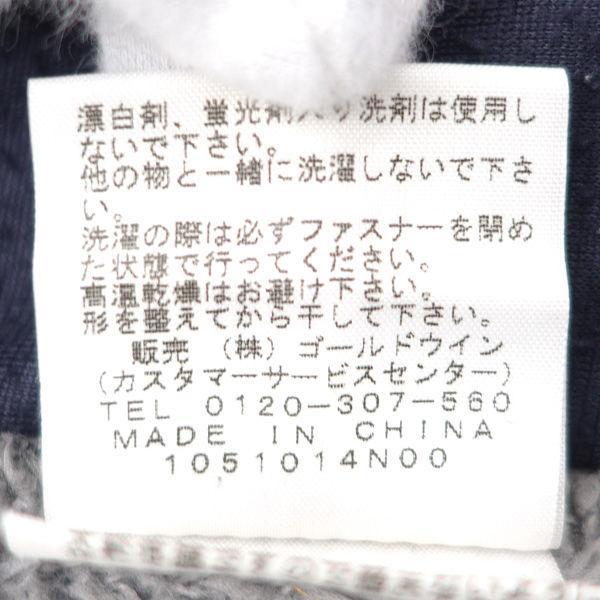 漂白剤、蛍光剤入り洗剤は使用し
ないで下さい。
他の物と一緒に洗濯しないで下さ
い。
洗濯の際は必ずファスナーを閉め
た状態で行ってください。
高温乾燥はお避け下さい。
形を整えてから干して下さい。
販売 (株) ゴールドウイン
(カスタマーサービスセンター)
TEL 0120-307-560
MADE IN CHINA
1051014N00